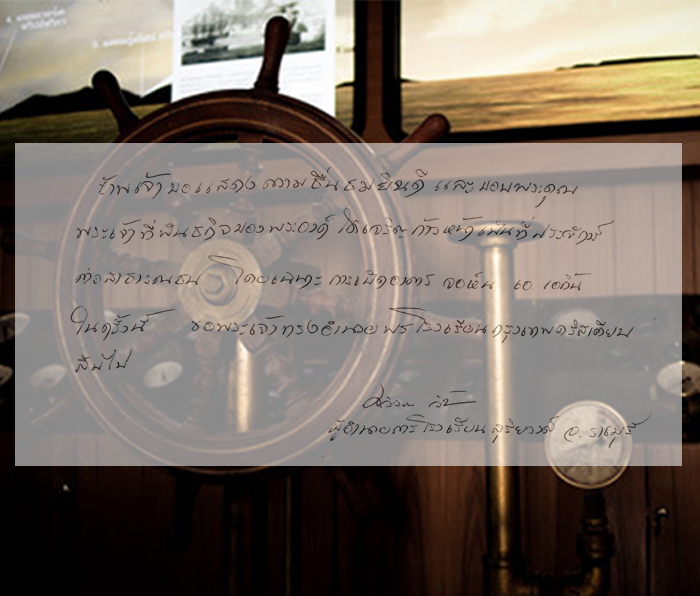 ข้าพเจ้าขอแสดงความชื่นชมยินดี และขอบพระคุณ
พระเจ้าที่พันธกิจของพระองค์ ได้เจริญก้าวหน้าเป็นที่ประจักษ์
ต่อสาธารณชน โดยเฉพาะ การเปิดอาคาร จอห์น เอ. เอกิ้น
ในครั้งนี้ ขอพระเจ้าทรงอำนวยพรโรงเรียนกรุงเทพคริสเตียน
สืบไป
ผู้อำนวยการโรงเรียนสุริยวงศ์ จ. ราชบุรี